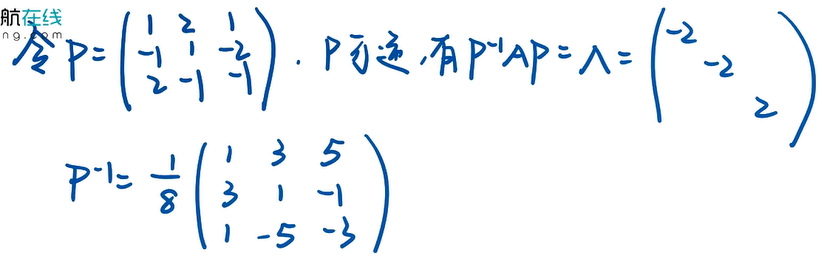 航在线
ng.com
令 P = \begin{pmatrix} 1 & 2 & 1 \\ -1 & 1 & -2 \\ 2 & -1 & -1 \end{pmatrix}. P可逆, 有 P^{-1}AP = Λ = \begin{pmatrix} -2 & & \\ & -2 & \\ & & 2 \end{pmatrix}
P^{-1} = \frac{1}{8} \begin{pmatrix} 1 & 3 & 5 \\ 3 & 1 & -1 \\ 1 & -5 & -3 \end{pmatrix}